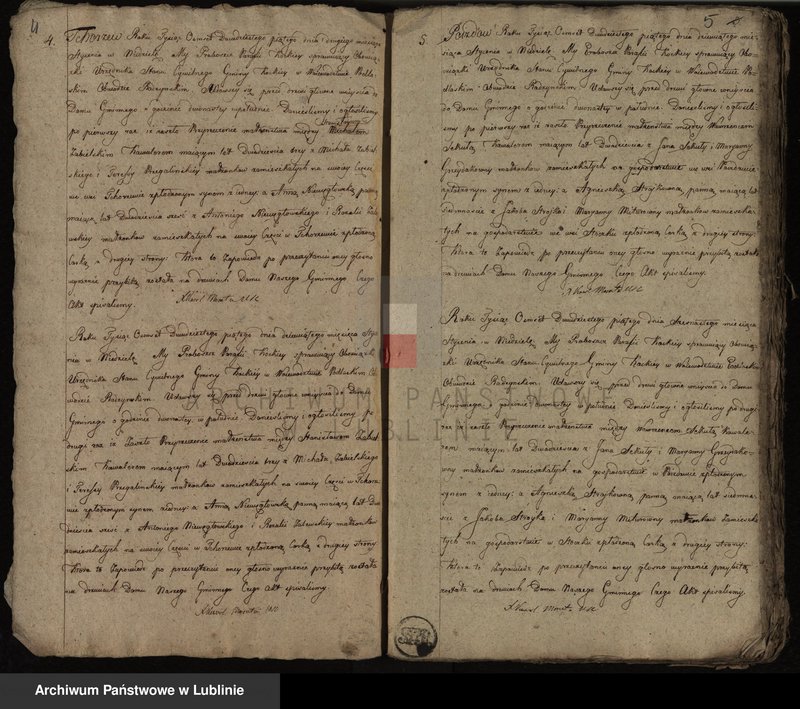 4
4.
Tchorzew Roku Tysiąc Osmset Dwudziestego piątego dnia drugiego miesiąca
Stycznia w Niedzielę My Proboszcz Parafii Kockiey sprawuiący Obowią
zki Urzędnika Stanu Cywilnego Gminy Kockiey w Woiewodztwie Podla
skim Obwodzie Radzynskim. Udawszy się przed drzwi głowne weyścia do
Domu Gminnego o godzinie dwunastey w południe Donieslismy i ogłosilismy
po pierwszy raz iż zaszło Przyrzeczenie małżenstwa między Michałem
Stanisławem
Zabielskim Kawalerem maiącym lat Dwadziescia trzy z Michała Zabiel
skiego i Teressy Przegalinskiey małżonkow zamieszkałych na swoiey Części
we wsi Tchorzewie spłodzonym synem z iedney: a Anną Niewęgłowską panną
maiącą lat Dwadziescia szesc z Antoniego Niewęgłowskiego i Rozalii Zale
wskiey małżonkow zamieszkałych na swoiey Części w Tchorzewie spłodzoną
Corką z drugiey strony: Ktora to Zapowiedz po przeczytaniu oney głosno
wyraznie przybitą została na drzwiach Domu Naszego Gminnego Czego
Akt spisalismy.
X Karol Moneta
Roku Tysiąc Osmset Dwudziestego piątego dnia dziewiątego miesiąca Sty
cznia w Niedzielę My Proboszcz Parafii Kockiey sprawuiący Obowiązki
Urzędnika Stanu Cywilnego Gminy Kockiey w Woiewodztwie Podlaskim Ob
wodzie Radzynskim. Udawszy się przed drzwi głowne weyscia do Domu
Gminnego o godzinie dwunastey w południe Donieslismy i ogłosilismy po
drugi raz iż Zaszło Przyrzeczenie małżenstwa między Stanisławem Zabiel
skim Kawalerem maiącym lat Dwadziescia trzy z Michała Zabielskiego
i Teressy Przegalinskiey małżonkow zamieszkałych na swoiey Części w Tchorze
wie spłodzonym synem z iedney: a Anną Niewęgłowską panną maiącą lat Dwa
dziescia szesc z Antoniego Niewęgłowskiego i Rozalii Zalewskiey małżonkow
zamieszkałych na swoiey Części w Tchorzewie spłodzoną Corką z drugiey strony
Ktora to Zapowiedz po przeczytaniu oney głosno wyraznie przybitą została
na drzwiach Domu Naszego Gminnego Czego Akt spisalismy.
X Karol Moneta
5
5.
Roku Tysiąc Osmset Dwudziestego piątego dnia dziewiątego mie
siąca Stycznia w Niedzielę My Proboszcz Parafii Kockiey sprawuiący Obo
wiązki Urzędnika Stanu Cywilnego Gminy Kockiey w Woiewodztwie Po
dlaskim Obwodzie Radzynskim. Udawszy się przed drzwi głowne weyscia
do Domu Gminnego o godzinie dwunastey w południe Donieslismy i ogłosili
smy po pierwszy raz iż zaszło Przyrzeczenie małżenstwa między Wawrzencem
Sekutą Kawalerem maiącym lat Dwadziescia z Jana Sekuty i Maryanny
małżonkow zamieszkałych na gospodarstwie we wsi
spłodzonym synem z iedney: a Agnieszką Stroykowną, panną maiącą lat
siedmnascie z Jakoba Stroyka i Maryanny małżonkow zamieszka
łych na gospodarstwie we wsi spłodzoną Corką z drugiey strony:
Ktora to Zapowiedz po przeczytaniu oney głosno wyraznie przybitą została
na drzwiach Domu Naszego Gminnego Czego Akt spisalismy.
X Karol Moneta
Roku Tysiąc Osmset Dwudziestego piątego dnia Szesnastego miesiąca
Stycznia w Niedzielę My Proboszcz Parafii Kockiey sprawuiący Obowią
zki Urzędnika Stanu Cywilnego Gminy Kockiey w Woiewodztwie Podlaskim
Obwodzie Radzynskim. Udawszy się przed drzwi głowne weyscia do Domu
Gminnego o godzinie dwunastey w południe Donieslismy i ogłosilismy po drugi
raz iż zaszło Przyrzeczenie małżenstwa między Wawrzencem Sekutą Kawale
rem maiącym lat Dwadziescia z Jana Sekuty i Maryanny
małżonkow zamieszkałych na gospodarstwie w spłodzonym
synem z iedney: a Agnieszką Stroykowną panną maiącą lat siedmna
scie z Jakoba Stroyka i Maryanny małżonkow Zamieszka
łych na gospodarstwie w spłodzoną Corką z drugiey strony:
Ktora to Zapowiedz po przeczytaniu oney głosno wyraznie przybitą
została na drzwiach Domu Naszego Gminnego Czego Akt spisalismy.
X Karol Moneta
ARCHIWUM PAŃSTWOWE
W LUBLINIE
Archiwum Państwowe w Lublinie